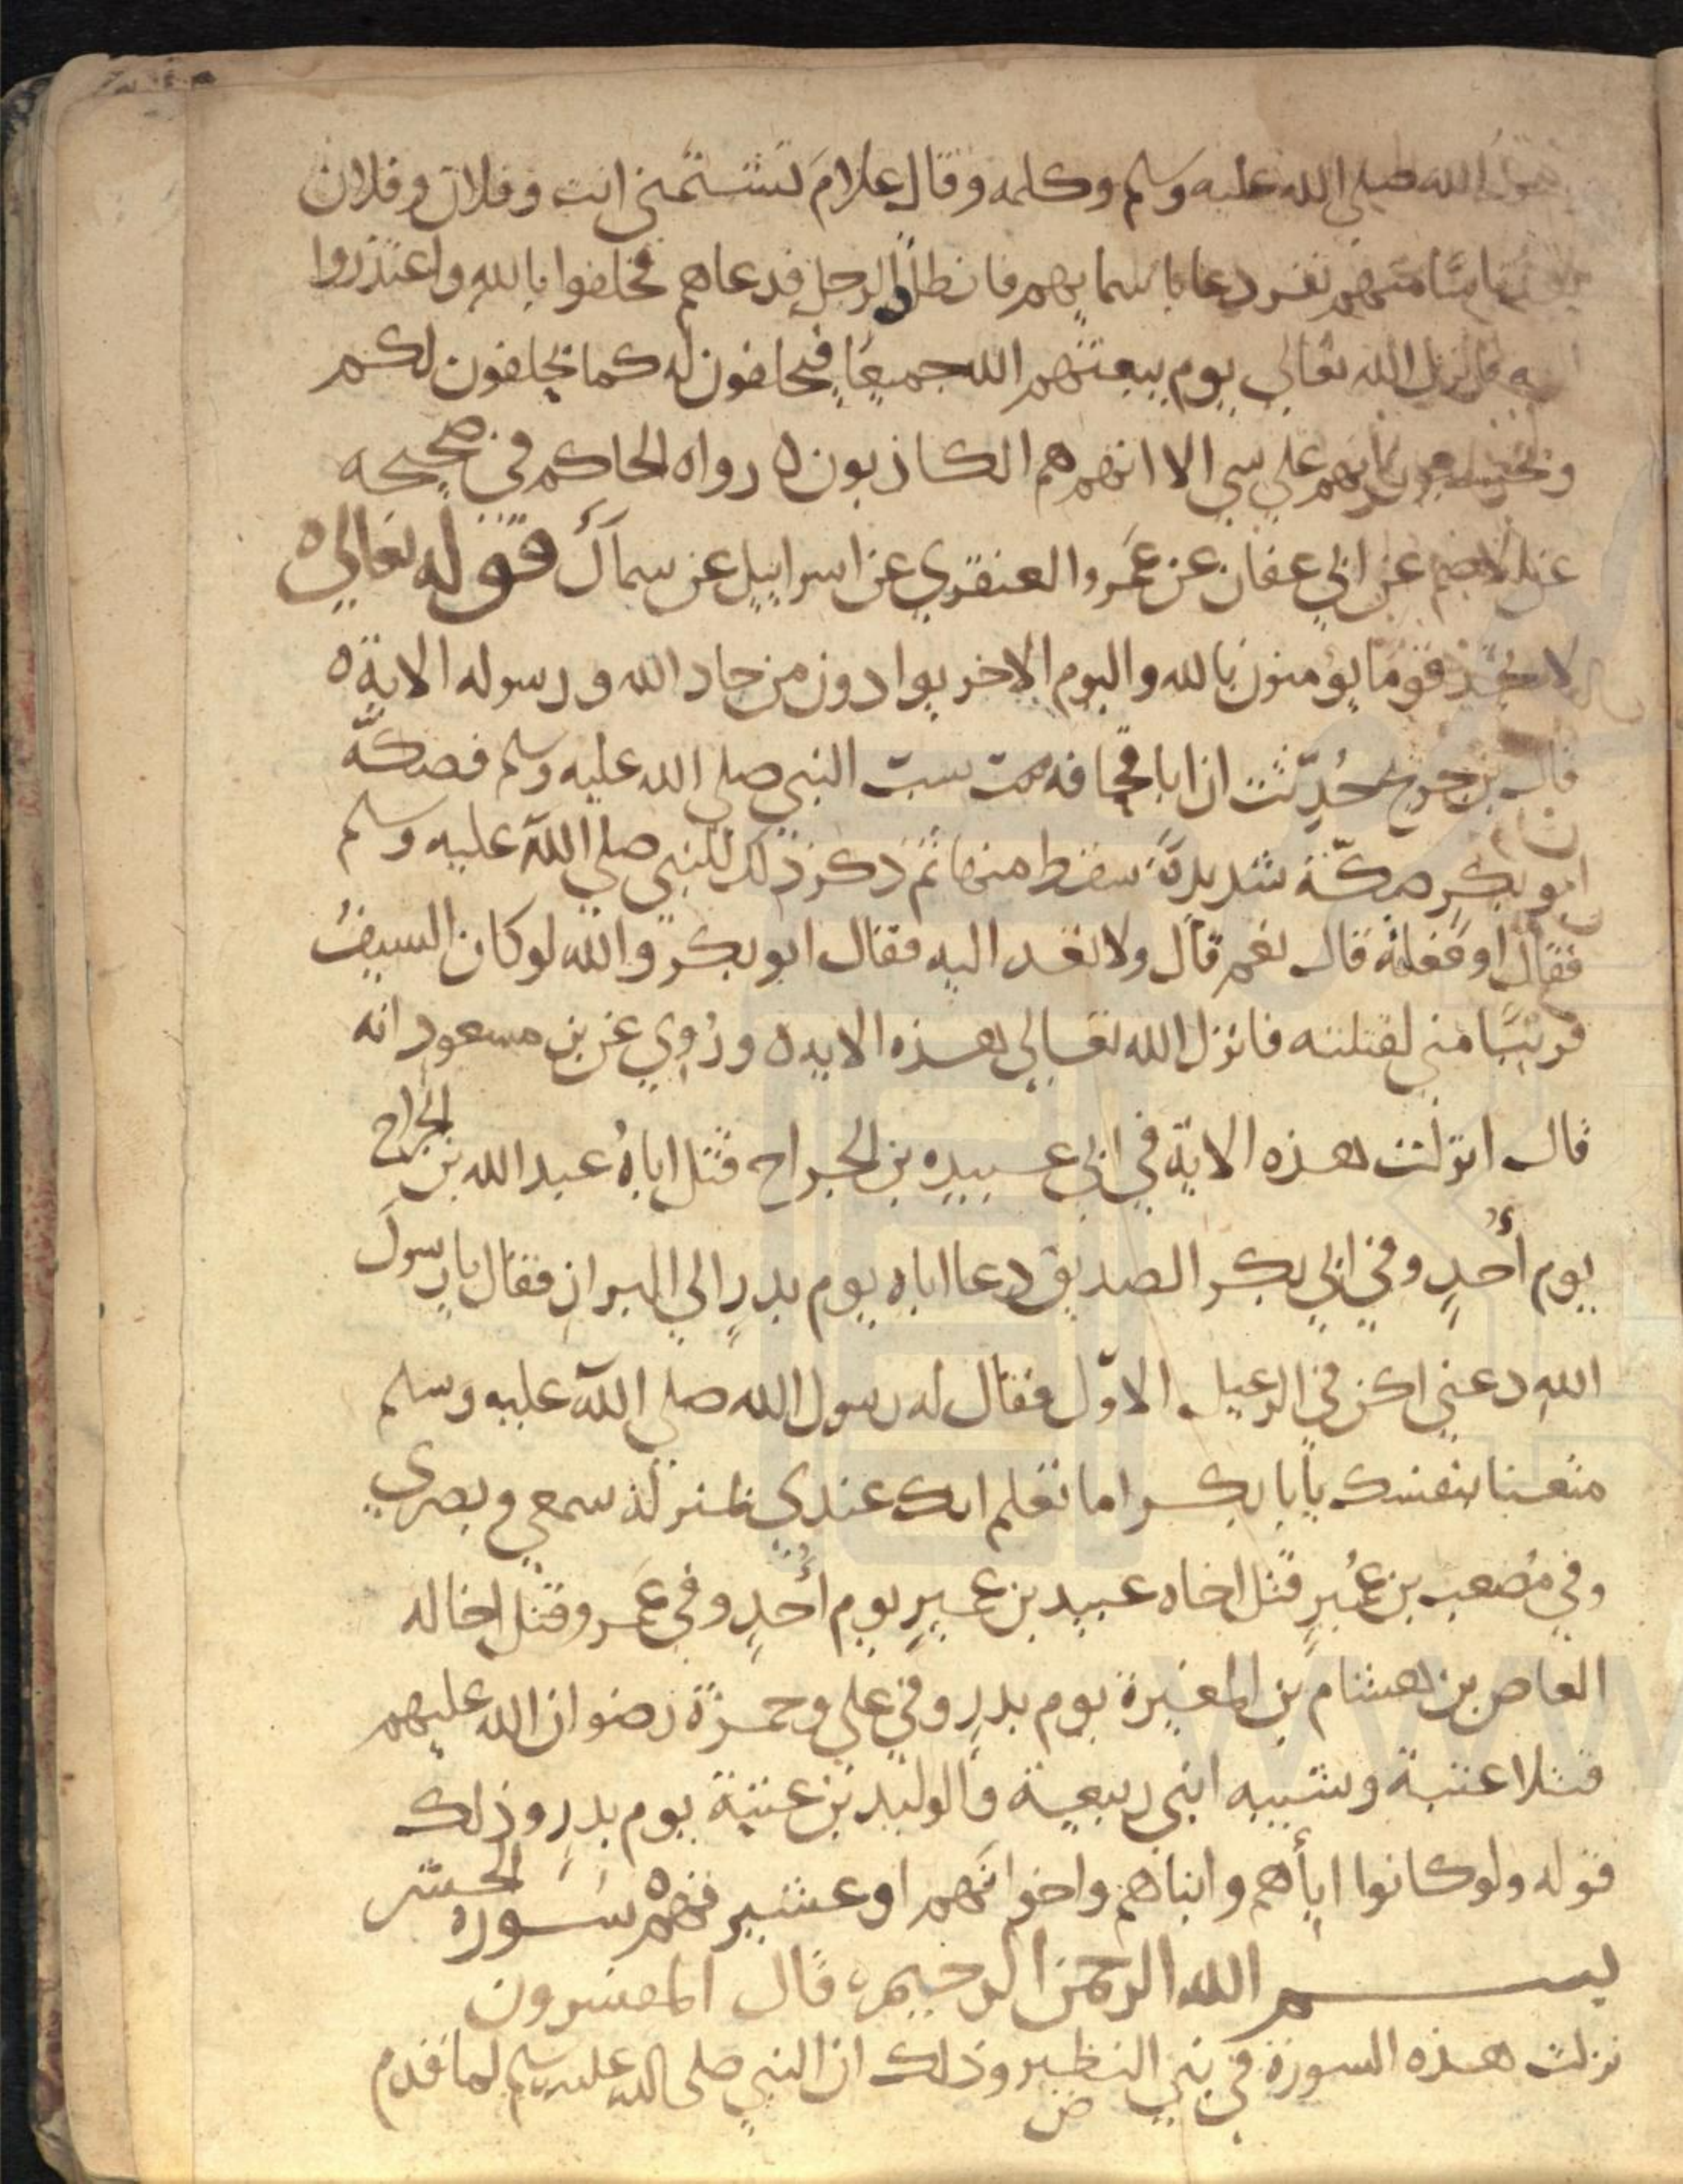 الله صلى الله عليه وسلم وكلمه وقال علامَ تشتمني انت وفلان وفلان
نفر دعا باسمايهم فانطلق الرجل فدعاهم فحلفوا بالله واعتذروا
فانزل الله تعالى يوم يبعثهم الله جميعًا فيحلفون له كما يحلفون لكم
ويحسبون انهم على شي الا انهم هم الكاذبون ه رواه الحاكم في صحيحه
عن الاصم عن ابي عفان عن عَمرو العنقزي عن اسراييل عن سماك قوله تعالى ه
لا تجد قومًا يؤمنون بالله واليوم الاخر يوادون من حاد الله ورسوله الاية ه
قال بن جريج حُدِّثت ان ابا قحافه سب النبي صلى الله عليه وسلم فصكّه
ابو بكرٍ صكّة شديدةً سقط منها ثم ذكر ذلك للنبي صلى الله عليه وسلم
فقال او فعلته قال نعم قال ولا تعد اليه فقال ابو بكر والله لو كان السيفُ
قريبًا مني لقتلته فانزل الله تعالى هذه الايه ه ورُوي عن بن مسعود انه
قال انزلت هذه الاية في ابي عبيده بن الجراح قتل اباهُ عبد الله بن الجراح
يوم أُحدٍ وفي ابي بكر الصديق دعا اباه يوم بدرٍ الي البراز فقال يا رسولَ
اللهِ دعني اكن في الرعيل الاوّل فقال له رسول الله صلي الله عليه وسلم
متعنا بنفسك يابا بكر اما تعلم انك عندي بمنزلة سمعي وبصري
وفي مُصعب بن عُميرٍ قتل اخاه عبيد بن عميرٍ يوم أُحدٍ وفي عمر وقتل اخا له
العاص بن هشام بن المغيرة يوم بدرٍ وفي علي وحمزة رضوان الله عليهم
قتلا عتبة وشيبه ابني ربيعة والوليد بن عتبة يوم بدرٍ وذلك
قوله ولو كانوا اباهم وابناهم واخوانهم او عشيرتهم ه سَورة الحشر
بسم الله الرحمن الرحيم ه قال المفسرون
نزلت هذه السورة في بني النظير وذلك ان النبي صلى الله عليه وسلم لما قدم
ض